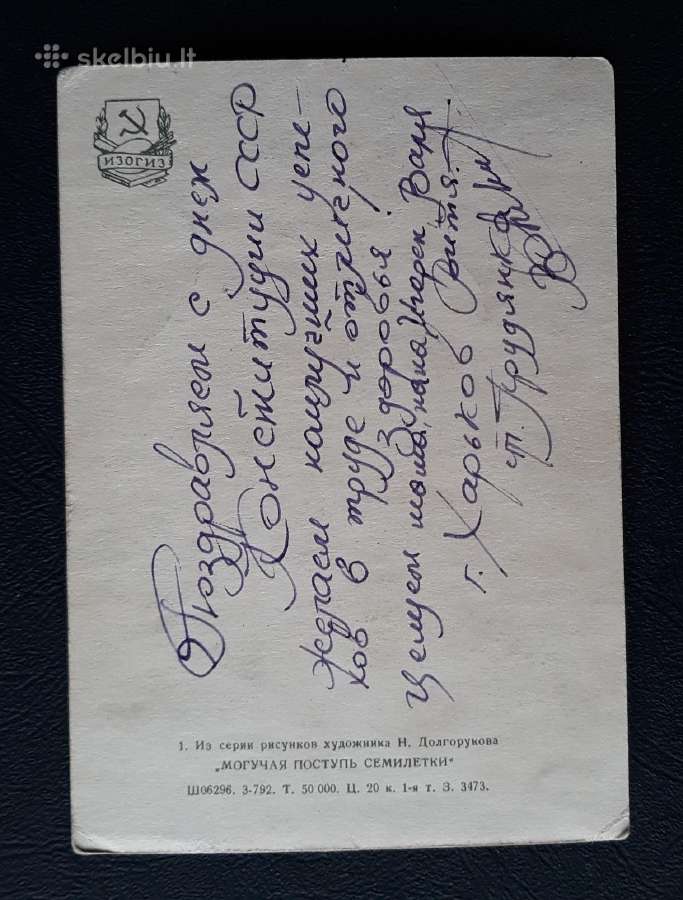 skelbiu.lt
ИЗОГИЗ
Поздравляем с днем
Конституции СССР
Желаем наилучших успе-
хов в труде и отличного
здоровья!
Целуем мама, папа, Игорек, Валя
Витя.
г. Харьков
1. Из серии рисунков художника Н. Долгорукова
„МОГУЧАЯ ПОСТУПЬ СЕМИЛЕТКИ“
Ш06296. 3-792. Т. 50 000. Ц. 20 к. 1-я т. З. 3473.